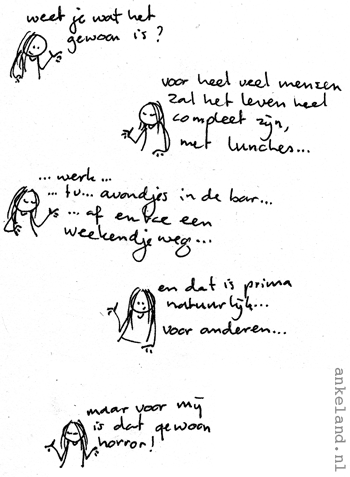 weet je wat het
gewoon is?
voor heel veel mensen
zal het leven heel
compleet zijn,
met lunches...
...werk...
...tv... avondjes in de bar...
...af en toe een
weekendje weg...
en dat is prima
natuurlijk...
voor anderen...
maar voor mij
is dat gewoon
horror!
ankeland.nl